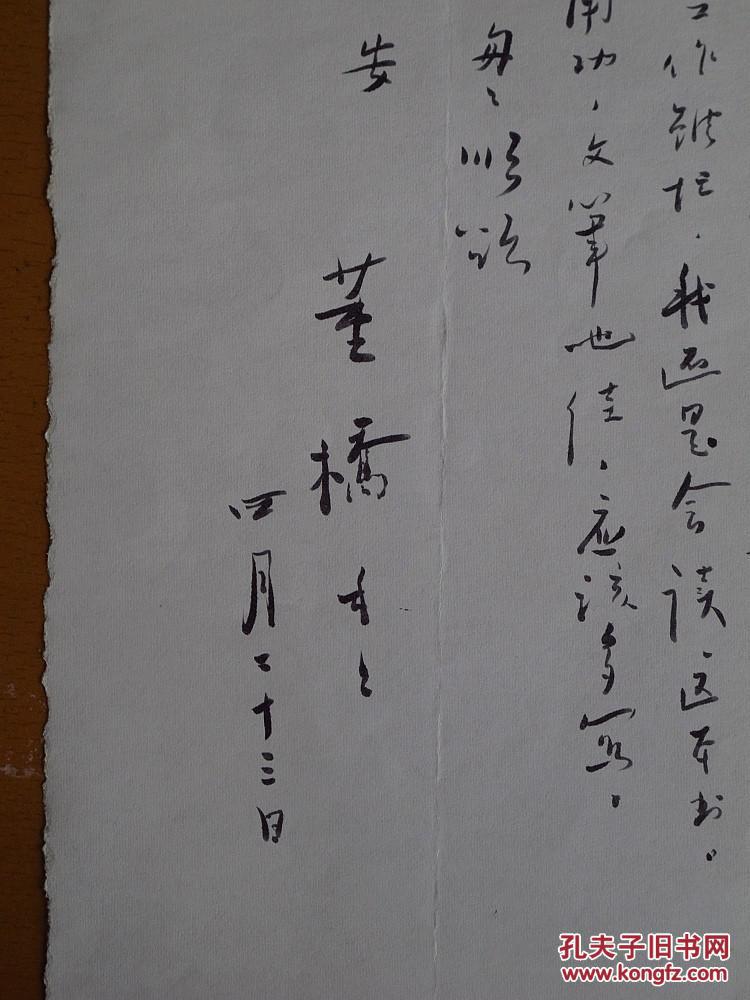 工作虽忙，我还是会读这本书。
用功，文笔也佳，应该多写。
匆匆 顺颂
安
董橋
四月二十三日
孔夫子旧书网
www.kongfz.com